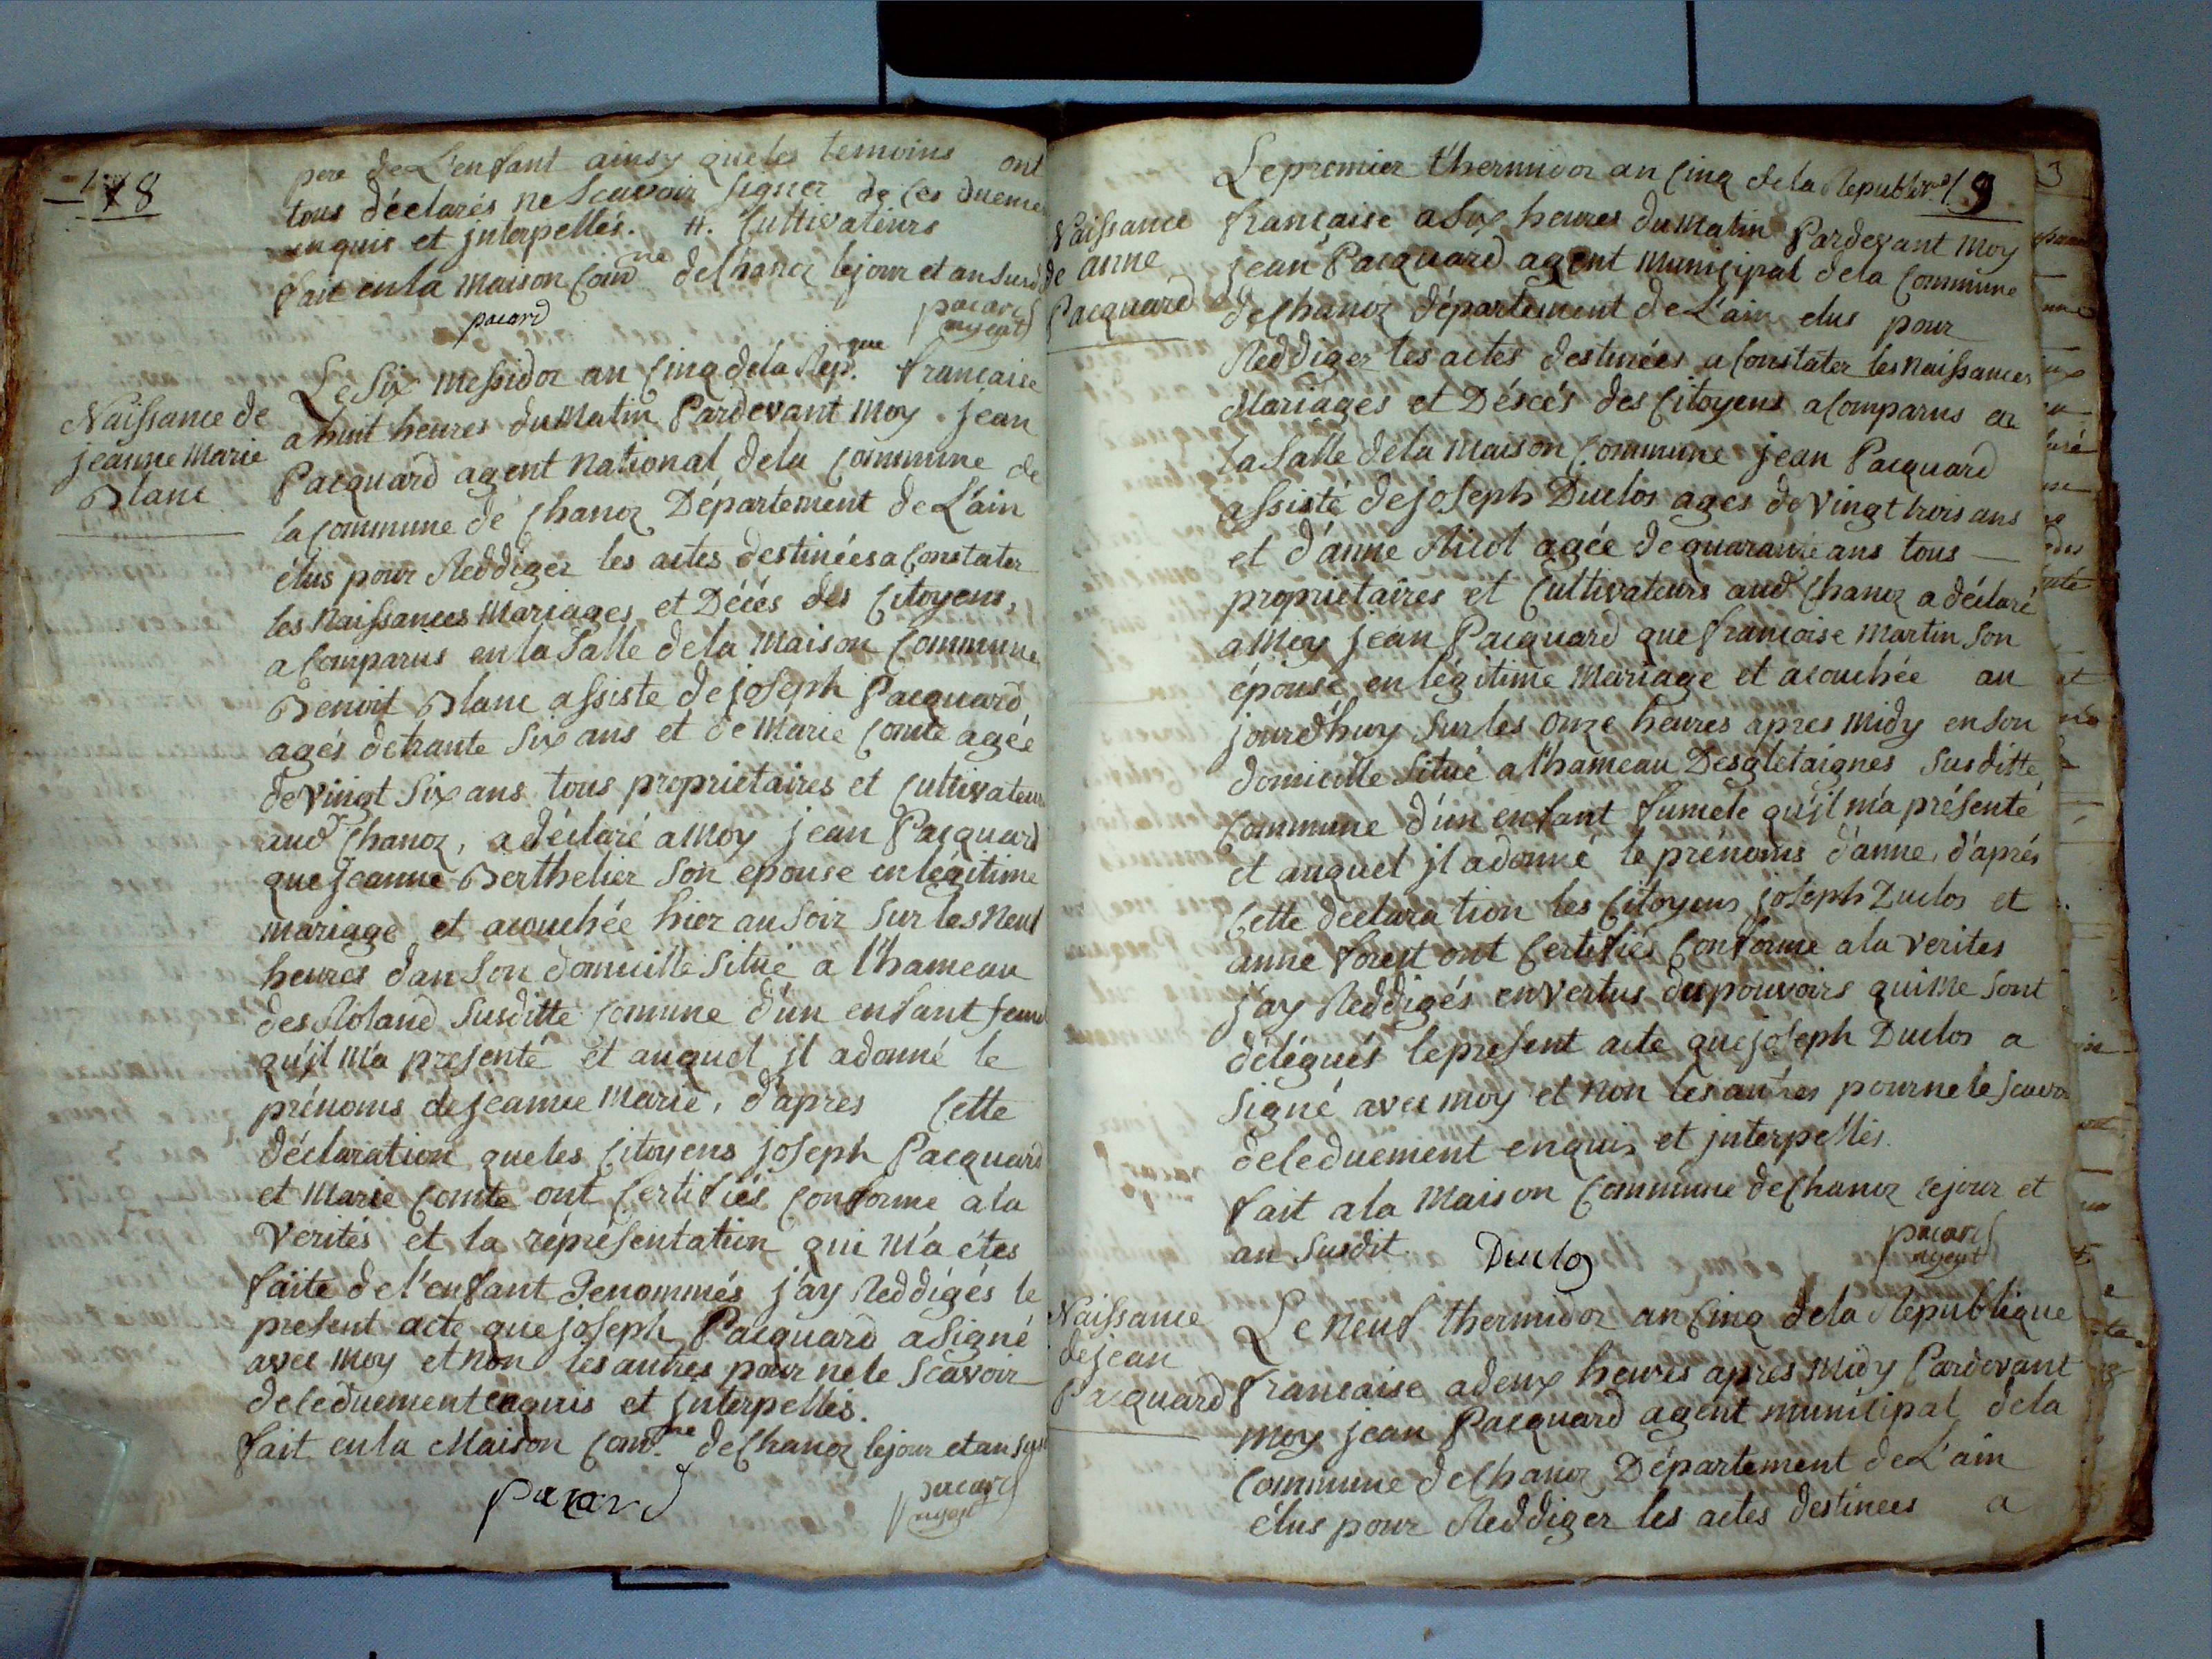 18
pere de L'enfant ainsy que les temoins ont
tous déclarés ne Scavoir signer de ces dueme
enquis et jnterpellés. #. Cultivateurs
fait en la maison Com ne de Chanoz le jour et an susd
pacard
pacard
agent
Naissance de
jeanne Marie
Blanc
Le Six messidor an Cinq de la Rep. que française
a huit heures du Matin Pardevant Moy jean
Pacquard agent National de la Commune de
la Commune de Chanoz Département de L'ain
élus pour Reddiger les actes destinées a Constater
les Naissances Mariages et Décés des Citoyens,
a Comparus en la Salle de la Maison Commune
Benoit Blanc assiste de joseph Pacquard
agés de trante Six ans et de Marie Comte agée
de vingt Six ans tous proprietaires et Cultivateurs
aud Chanoz, a déclaré a Moy jean Pacquard
que jeanne Berthelier son epouse en légitime
mariage et acouchée hier au soir sur les Neuf
heures dan son domicille situé a l'hameau
des Roland susditte Comune d'un enfant feme
qu'jl m'a presenté et auquel jl a donné le
prénoms de jeanne Marie, d'apres Cette
déclaration que les Citoyens joseph Pacquard
et Marie Comte ont Certifiés Conforme a la
Verités et la réprésentation qui m'a étes
faite de l'enfant Denommés j'ay Reddigés le
present acte que joseph Pacquard a signé
avec moy et non les autres pour ne le Scavoir
de ce duement enquis et jnterpellés.
fait en la Maison Com. ne de Chanoz le jour et an sus
pacard
pacard
agent
19
Naissance
de anne
Pacquard
Le premier thermidor an Cinq de la Republi
française a Six heures du Matin Pardevant Moy
jean Pacquard agent Municipal de la Commune
de Chanoz département de L'ain elus pour
Reddiger les actes destinées a Constater les Naissances
Mariages et Désces des Citoyens a Comparus en
la Salle de la Maison Commune jean Pacquard
assisté de joseph Duclos ages de vingt trois ans
et d'anne agée de quarante ans tous
proprietaires et Cultivateurs aud Chanoz a déclaré
a Moy jean Pacquard que francoise Martin son
épouse en légitime Mariage et acouchée au
jourd'huy sur les onze heures apres midy en son
domicille situé a l'hameau susditte
Commune d'un enfant fumele qu'jl m'a présenté
et auquel jl a donné le prénoms d'anne, d'aprés
Cette declaration les Citoyens joseph Duclos et
anne ont Certifiés Conforme a la Verites
j'ay Reddigés en vertus des pouvoirs qui me sont
délégués le present acte que joseph Duclos a
signé avec moy et non les autres pour ne le scavoir
de ce duement enquis et jnterpellés.
fait a la Maison Commune de Chanoz le jour et
an susdit. Duclos
pacard
agent
Naissance
de jean
Pacquard
Le Neuf thermidor an Cinq de la Republique
francaise a deux heures apres Midy Pardevant
moy jean Pacquard agent municipal de la
Commune de Chanoz Département de L'ain
élus pour Reddiger les actes destinees a